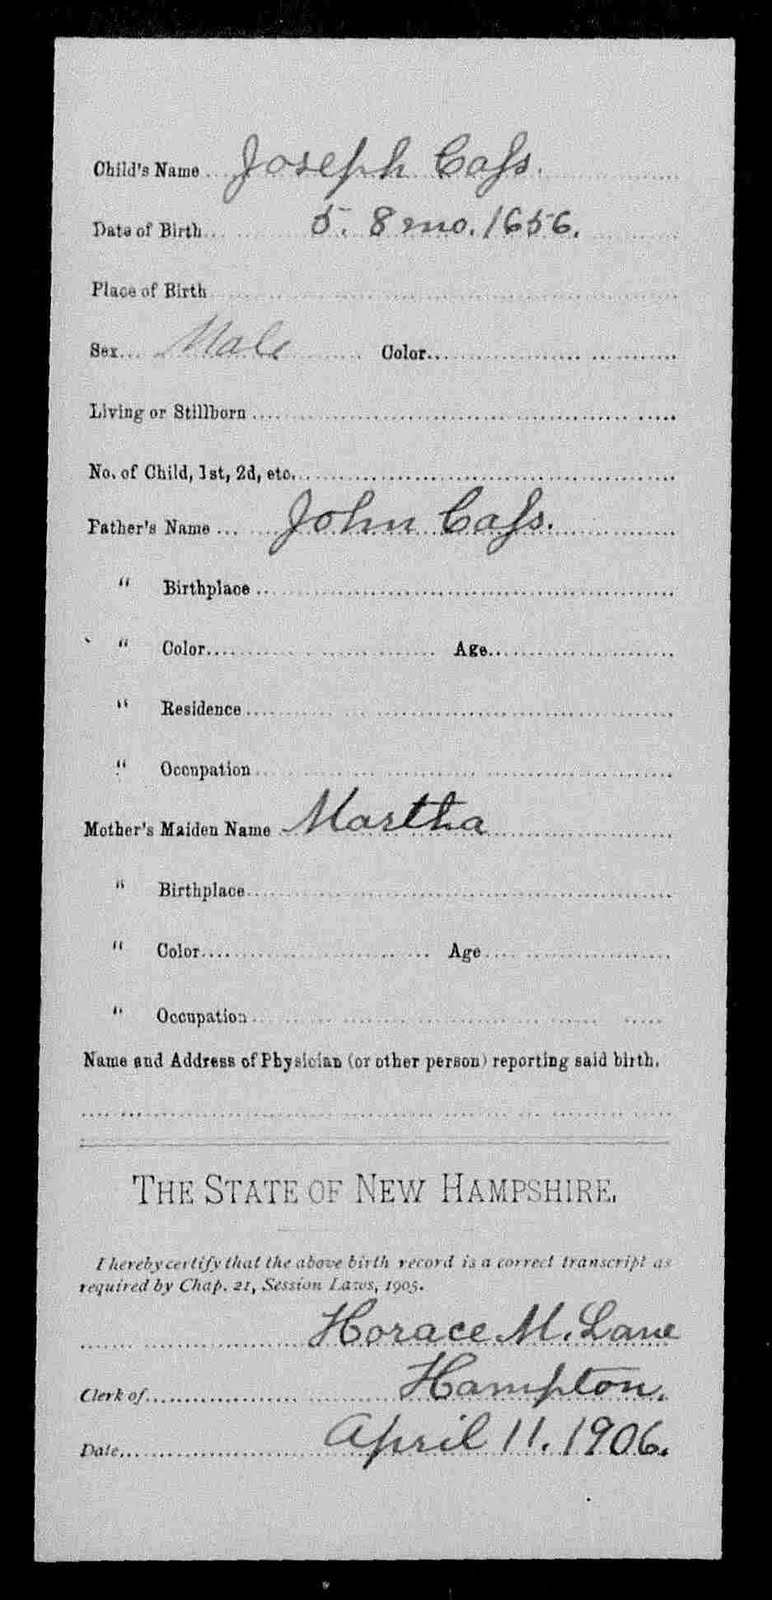 Child's Name Joseph Caſs.
Date of Birth 5. 8 mo. 1656.
Place of Birth
Sex Male Color
Living or Stillborn
No. of Child, 1st, 2d, etc.
Father's Name John Caſs.
" Birthplace
" Color Age
" Residence
" Occupation
Mother's Maiden Name Martha
" Birthplace
" Color Age
" Occupation
Name and Address of Physician (or other person) reporting said birth.
THE STATE OF NEW HAMPSHIRE.
I hereby certify that the above birth record is a correct transcript as
required by Chap. 21, Session Laws, 1905.
Horace M. Lane
Clerk of Hampton.
Date April 11. 1906.